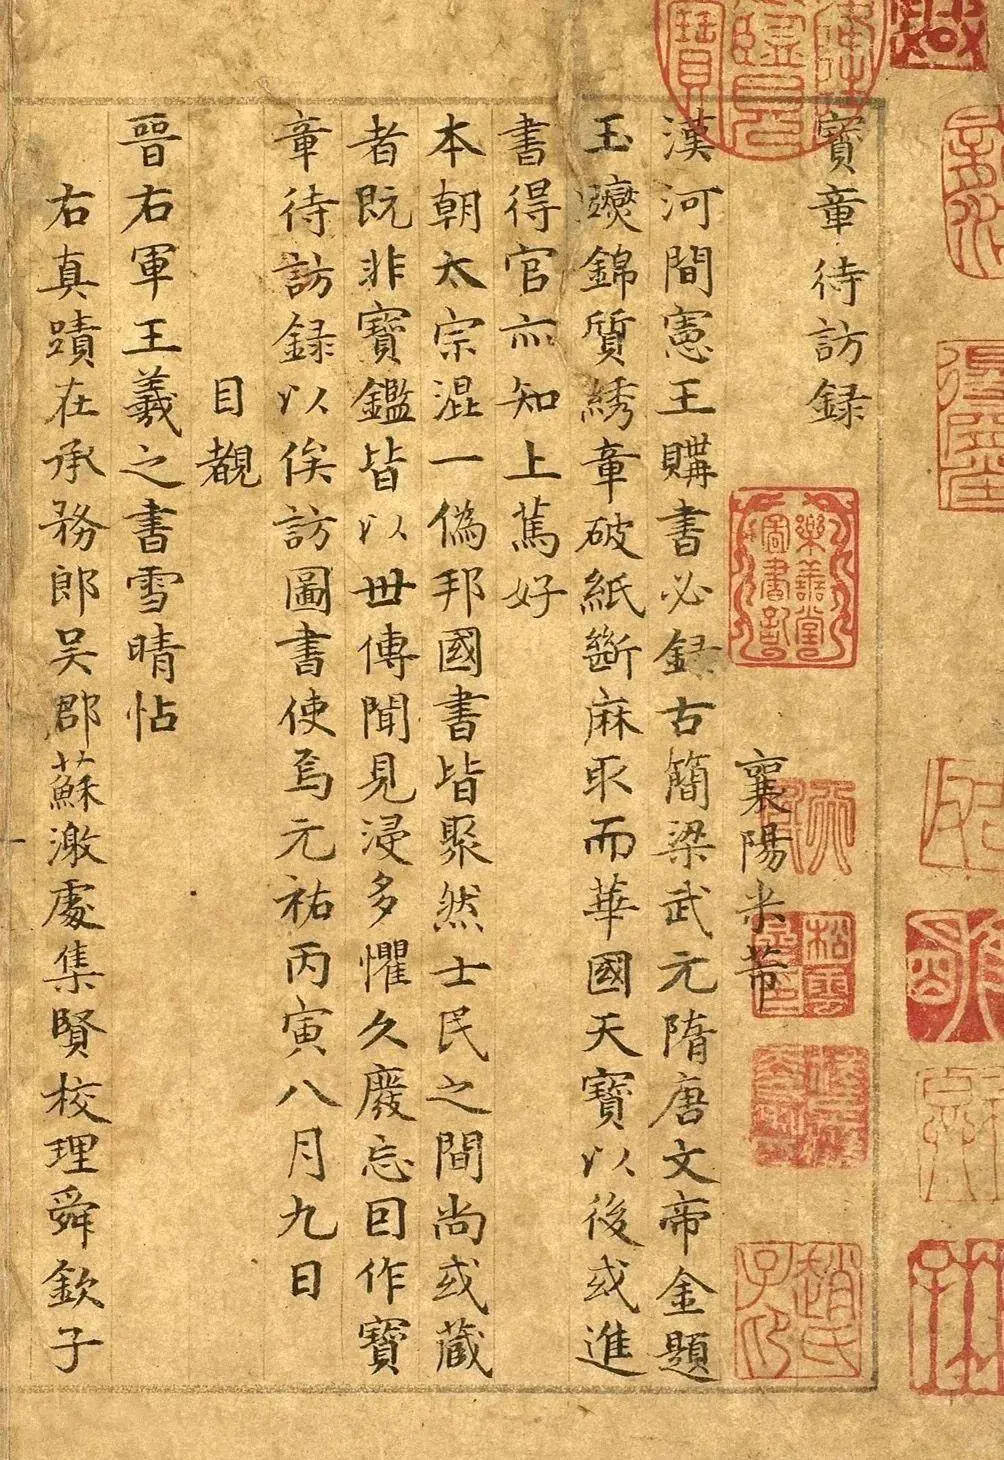 寶章待訪録
襄陽米芾
漢河間憲王購書必録古簡梁武元隋唐文帝金題
玉躞錦質綉章破紙斷麻取而華國天寶以後或進
書得官亦知上篤好
本朝太宗混一偽邦國書皆聚然士民之間尚或藏
者既非寶鑑皆以世傳聞見浸多懼久廢忘囙作寶
章待訪録以俟訪圖書使焉元祐丙寅八月九日
目覩
晉右軍王羲之書雪晴帖
右真蹟在承務郎吴郡蘇激處集賢校理舜欽子
樂善堂圖書記
松雪齋
趙氏子印